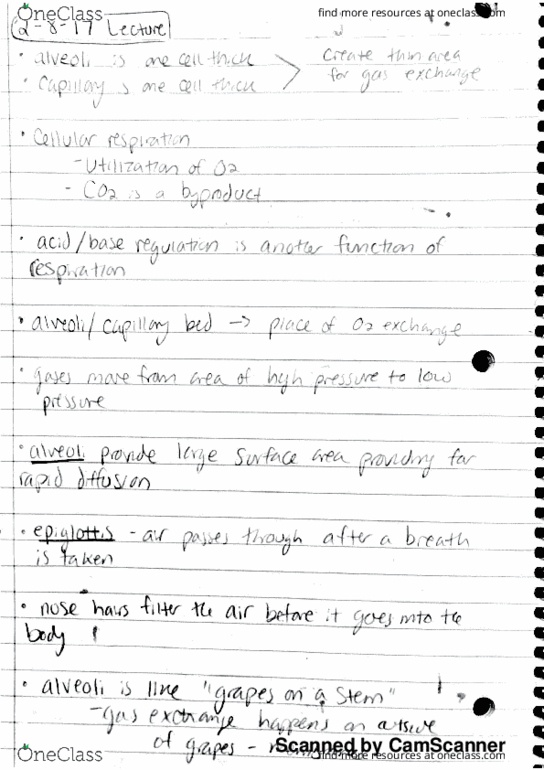 OneClass
find more resources at oneclass.com
find more resources at oneclass.com
2-8-17 Lecture
• alveoli is one cell thick
• Capillary s one cell thick
create thin area
for gas exchange
• Cellular respiration
- Utilization of O2
- CO2 is a byproduct
• acid/base regulation is another function of
respiration
• alveoli/capillary bed → place of O2 exchange
• gases move from area of high pressure to low
pressure
• alveoli provide large surface area providing for
rapid diffusion
• epiglottis - air passes through after a breath
is taken
• nose hairs filter the air before it goes into the
body
• alveoli is like "grapes on a stem"
- gas exchange happens on outside
of grapes -
Scanned by CamScanner
OneClass
find more resources at oneclass.com